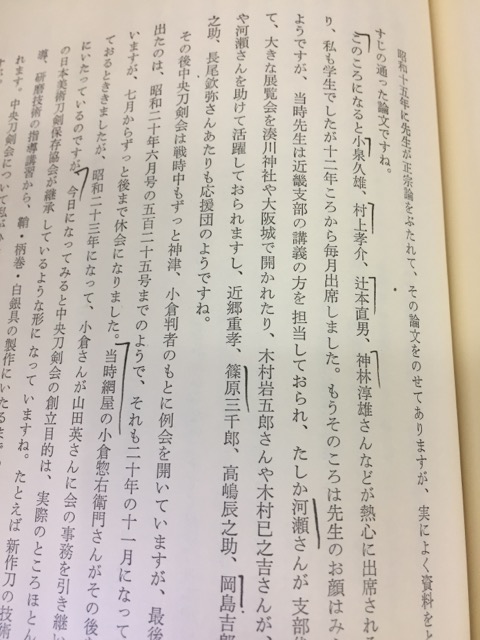 昭和十五年に先生が正宗論をぶたれて、その論文をのせてありますが、実によく資料を
すじの通った論文ですね。
このころになると小泉久雄、村上孝介、辻本直男、神林淳雄さんなどが熱心に出席され
り、私も学生でしたが十二年ころから毎月出席しました。もうそのころは先生のお顔はみ
ようですが、当時先生は近畿支部の講義の方を担当しておられ、たしか河瀬さんが支部
て、大きな展覧会を湊川神社や大阪城で開かれたり、木村岩五郎さんや木村巳之吉さんが、
や河瀬さんを助けて活躍しておられますし、近郷重孝、篠原三千郎、高嶋辰之助、岡島吉郎
之助、長尾欽弥さんあたりも応援団のようですね。
その後中央刀剣会は戦時中もずっと神津、小倉判者のもとに例会を開いていますが、最後
出たのは、昭和二十年六月号の五百二十五号までのようで、それも二十年の十一月になって
いますが、七月からずっと後まで休会になりました。当時網屋の小倉惣右衛門さんがその後
ておるとききましたが、昭和二十三年になって、小倉さんが山田英さんに会の事務を引き継い
にいたっているのですが、今日になってみると中央刀剣会の創立目的は、実際のところほとん
の日本美術刀剣保存協会が継承しているような形になっていますね。たとえば新作刀の技術
導、研磨技術の指導講習から、鞘・柄巻・白銀具の製作にいたるまで
れます。中央刀剣会について私が